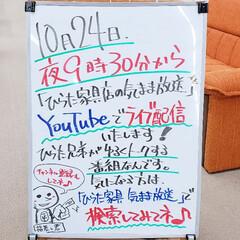 10月24日.
夜9時30分から
「ひらた家具店の気まま放送」
YouTubeでライブ配信
いたします！
ひらた兄弟がゆるくトークする
番組なんです。
気になる方は、
「ひらた家具 気まま放送」で
検索してみてネ♪
チャンネル登録も
してネ♪